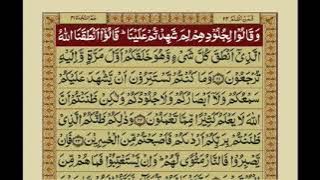 فمن اظلم ٢٤
وَ قَالُوْا لِجُلُوْدِهِمْ لِمَ شَهِدْتُّمْ عَلَیْنَاؕ قَالُوْۤا اَنْطَقَنَا اللّٰهُ
الَّذِیْۤ اَنْطَقَ كُلَّ شَیْءٍ وَّ هُوَ خَلَقَكُمْ اَوَّلَ مَرَّةٍ وَّ اِلَیْهِ
تُرْجَعُوْنَ ۝۲۱ وَ مَا كُنْتُمْ تَسْتَتِرُوْنَ اَنْ یَّشْهَدَ عَلَیْكُمْ
سَمْعُكُمْ وَ لَاۤ اَبْصَارُكُمْ وَ لَا جُلُوْدُكُمْ وَ لٰكِنْ ظَنَنْتُمْ اَنَّ
اللّٰهَ لَا یَعْلَمُ كَثِیْرًا مِّمَّا تَعْمَلُوْنَ ۝۲۲ وَ ذٰلِكُمْ ظَنُّكُمُ الَّذِیْ
ظَنَنْتُمْ بِرَبِّكُمْ اَرْدٰىكُمْ فَاَصْبَحْتُمْ مِّنَ الْخٰسِرِیْنَ ۝۲۳ فَاِنْ
یَّصْبِرُوْا فَالنَّارُ مَثْوًى لَّهُمْ وَ اِنْ یَّسْتَعْتِبُوْا فَمَا هُمْ مِّنَ